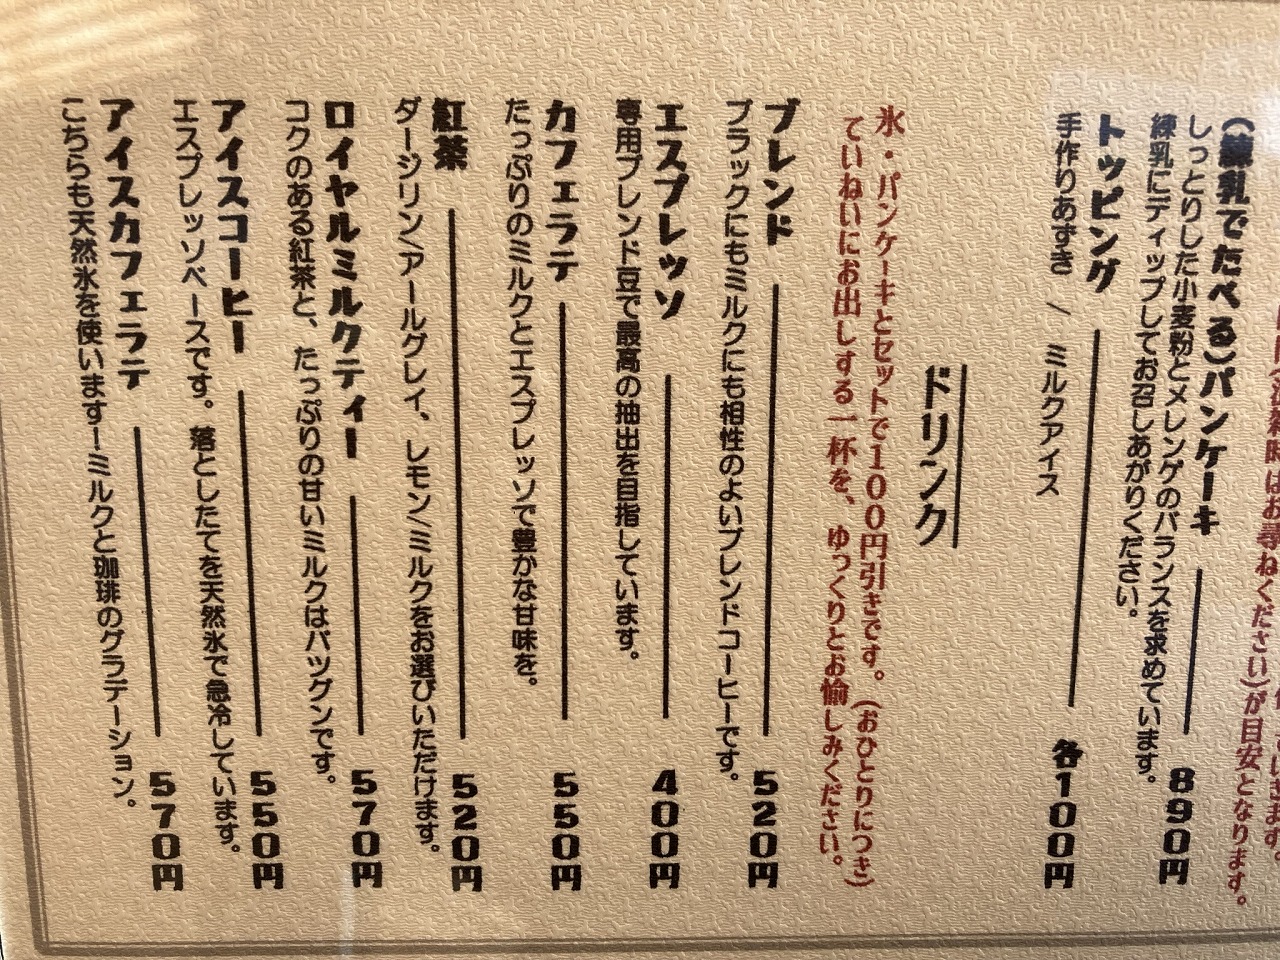 はお尋ねください)が目安となります。
(練乳でたべる)パンケーキ 890円
しっとりした小麦粉とメレンゲのバランスを求めています。
練乳にディップしてお召しあがりください。
トッピング 各100円
手作りあずき / ミルクアイス
ドリンク
氷・パンケーキとセットで100円引きです。(おひとりにつき)
ていねいにお出しする一杯を、ゆっくりとお愉しみください。
ブレンド 520円
ブラックにもミルクにも相性のよいブレンドコーヒーです。
エスプレッソ 400円
専用ブレンド豆で最高の抽出を目指しています。
カフェラテ 550円
たっぷりのミルクとエスプレッソで豊かな甘味を。
紅茶 520円
ダージリン/アールグレイ、レモン/ミルクをお選びいただけます。
ロイヤルミルクティー 570円
コクのある紅茶と、たっぷりの甘いミルクはバツグンです。
アイスコーヒー 550円
エスプレッソベースです。落としたてを天然氷で急冷しています。
アイスカフェラテ 570円
こちらも天然氷を使いますーミルクと珈琲のグラデーション。